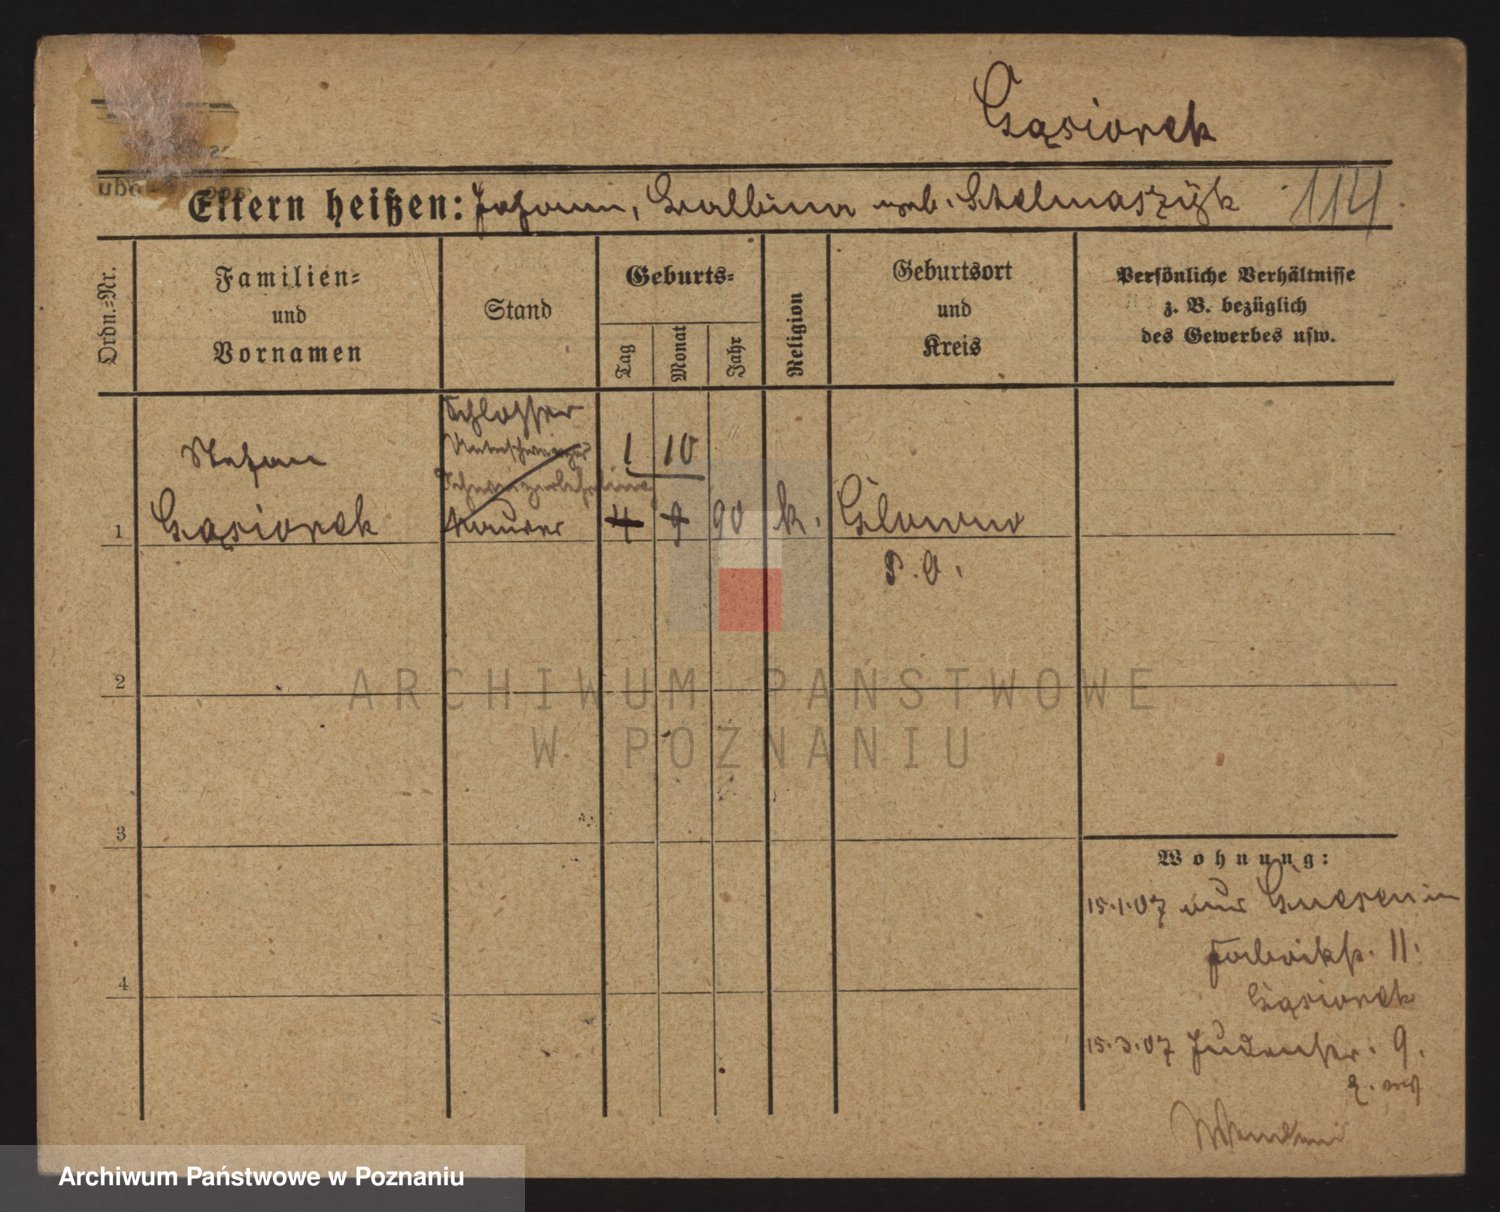 Gąsiorek
Eltern heißen: Johann, Balbina geb. Stelmaszyk 114
Ordn.-Nr.
Familien-
und
Vornamen
Stand
Geburts-
Tag
Monat
Jahr
Religion
Geburtsort
und
Kreis
Persönliche Verhältnisse
z. B. bezüglich
des Gewerbes usw.
Schlosser
Stefan
1 10
1 Gąsiorek Maurer 4 9 90 k. Glowno
P. O.
2
3
4
Wohnung:
15.1.07 aus Gnesen in
Fabrikstr. 11.
Gąsiorek
15.3.07 Judenstr. 9.
ARCHIWUM PAŃSTWOWE
W POZNANIU
Archiwum Państwowe w Poznaniu